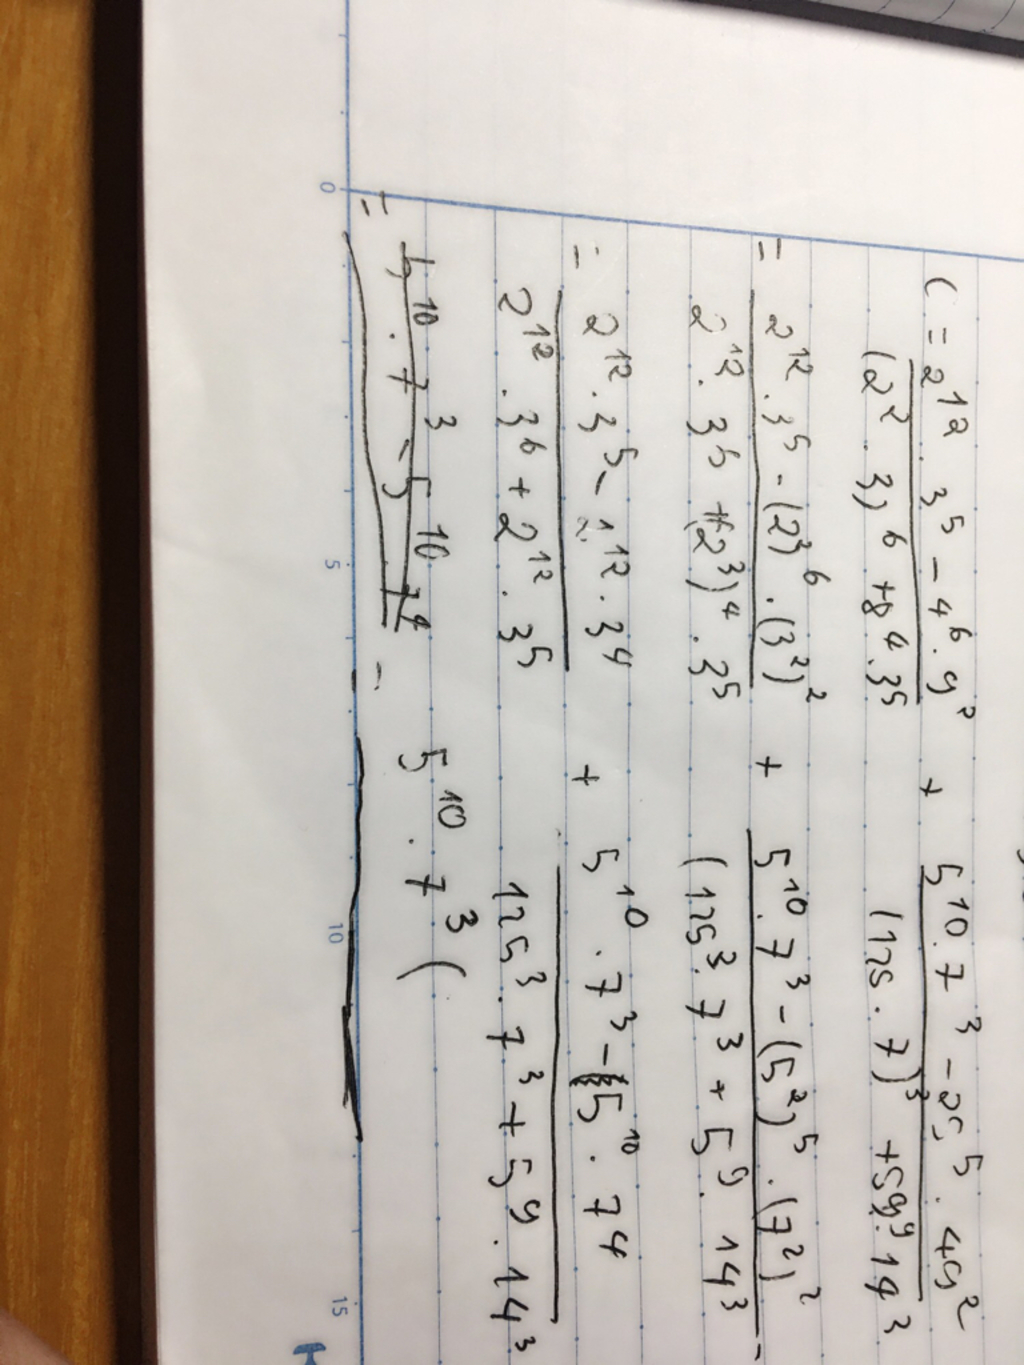 C = 2^12 . 3^5 - 4^6 . 9^2 / (2^2 . 3)^6 + 8^4 . 3^5 + 5^10 . 7^3 - 25^5 . 49^2 / (125 . 7)^3 + 5^9 . 14^3
= 2^12 . 3^5 - (2^2)^6 . (3^2)^2 / 2^12 . 3^6 + (2^3)^4 . 3^5 + 5^10 . 7^3 - (5^2)^5 . (7^2)^2 / (125^3 . 7^3 + 5^9 . 14^3 -
= 2^12 . 3^5 - 2^12 . 3^4 / 2^12 . 3^6 + 2^12 . 3^5 + 5^10 . 7^3 - 5^10 . 7^4 / 125^3 . 7^3 + 5^9 . 14^3
= 5^10 . 7^3 - 5^10 7^4 = 5^10 . 7^3 (
0 5 10 15